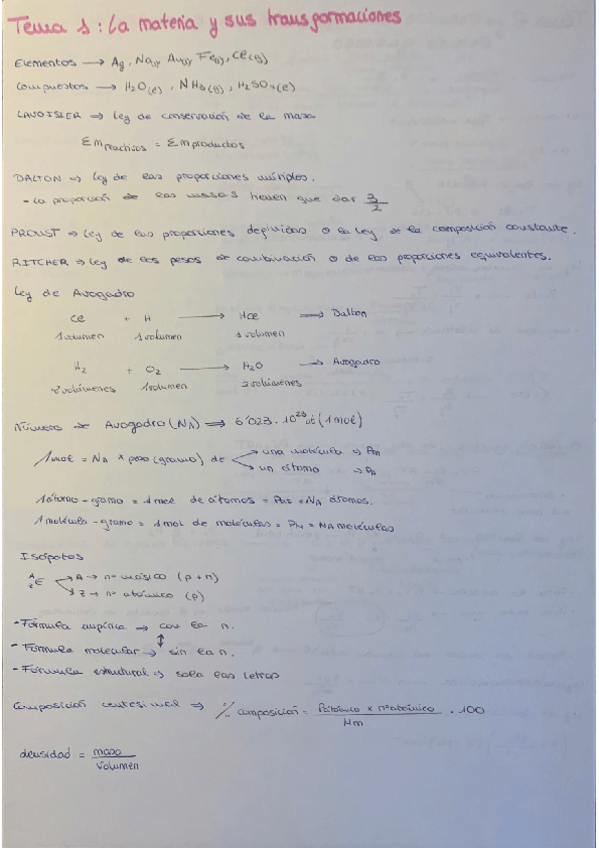 Tema 1: La materia y sus transformaciones
Elementos → Ag, Na(s), Au(s), Fe(s), Cl(g)
Compuestos → H2O(l), NH3(g), H2SO4(l)
LAVOISIER → ley de conservación de la masa
Σm reactivos = Σm productos
DALTON → ley de las proporciones múltiples.
- La proporción de las masas tienen que dar 3/2
PROUST → ley de las proporciones definidas o la ley de la composición constante.
RITCHER → ley de los pesos de combinación o de las proporciones equivalentes.
Ley de Avogadro
Cl + H → HCl → Dalton
1 volumen 1 volumen 1 volumen
H2 + O2 → H2O → Avogadro
2 volúmenes 1 volumen 2 volúmenes
Número de Avogadro (NA) ⇒ 6'023 · 10^23 at (1 mol)
1 mol = NA * peso (gramo) de una molécula ⇒ PM
un átomo ⇒ PA
1 átomo-gramo = 1 mol de átomos = Pat = NA átomos.
1 molécula-gramo = 1 mol de moléculas = PM = NA moléculas
Isópotos
A Z E A → nº másico (p + n)
Z → nº atómico (p)
- Fórmula empírica → con la n.
↕
- Fórmula molecular → sin la n.
- Fórmula estructural ⇒ solo las letras
Composición centesimal ⇒ % composición = P.atómico x nºatómico / Mm · 100
densidad = masa / volumen